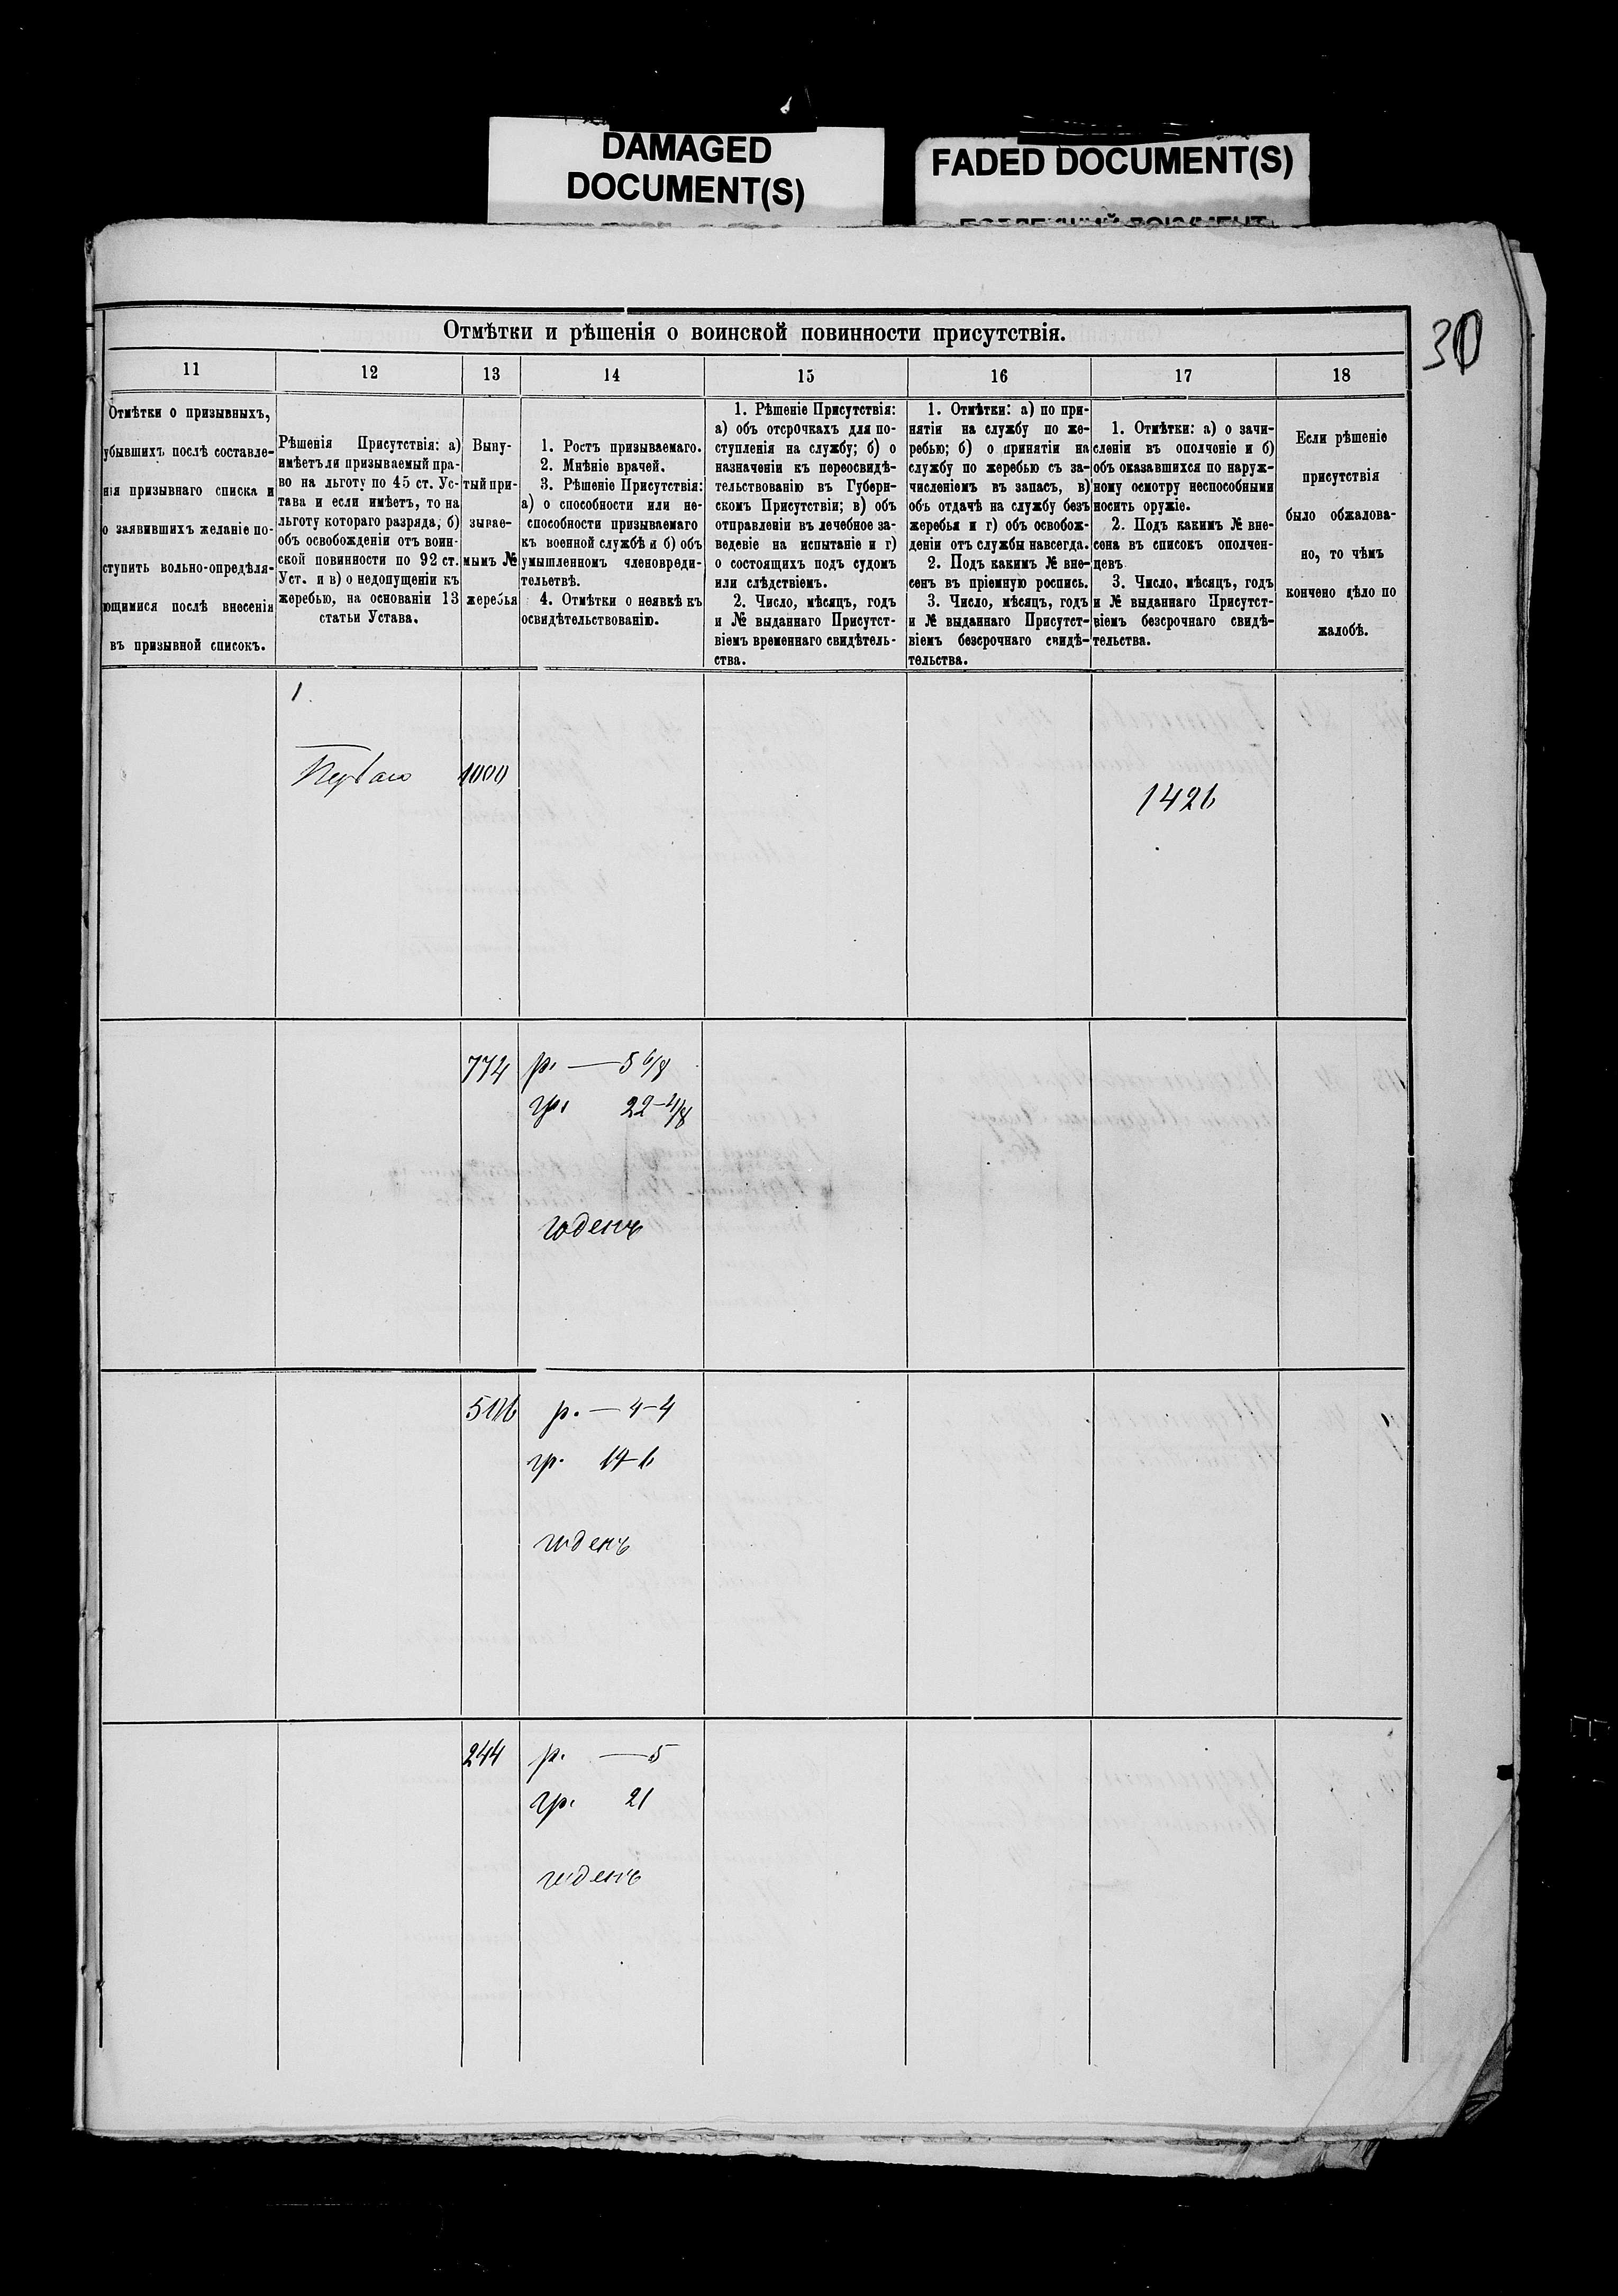 DAMAGED
DOCUMENT(S)
FADED DOCUMENT(S)
30
Отмѣтки и рѣшенія о воинской повинности присутствія.
11 12 13 14 15 16 17 18
Отмѣтки о призывныхъ,
убывшихъ послѣ составле-
нія призывнаго списка и
о заявившихъ желаніе по-
ступить вольно-опредѣля-
ющимися послѣ внесенія
въ призывной списокъ.
Рѣшенія Присутствія: а)
имѣетъли призываемый пра-
во на льготу по 45 ст. Ус-
тава и если имѣетъ, то на
льготу котораго разряда, б)
объ освобожденіи отъ воин-
ской повинности по 92 ст.
Уст. и в) о недопущеніи къ
жеребью, на основаніи 13
статьи Устава.
Выну-
тый при-
зывае-
мымъ №
жеребья
1. Ростъ призываемаго.
2. Мнѣніе врачей.
3. Рѣшеніе Присутствія:
а) о способности или не-
способности призываемаго
къ военной службѣ и б) объ
умышленномъ членовреди-
тельствѣ.
4. Отмѣтки о неявкѣ къ
освидѣтельствованію.
1. Рѣшеніе Присутствія:
а) объ отсрочкахъ для по-
ступленія на службу; б) о
назначеніи къ переосвидѣ-
тельствованію въ Губерн-
скомъ Присутствіи; в) объ
отправленіи въ лечебное за-
веденіе на испытаніе и г)
о состоящихъ подъ судомъ
или слѣдствіемъ.
2. Число, мѣсяцъ, годъ
и № выданнаго Присутст-
віемъ временнаго свидѣтель-
ства.
1. Отмѣтки: а) по при-
нятіи на службу по же-
ребью; б) о принятіи на
службу по жеребью съ за-
численіемъ въ запасъ, в)
объ отдачѣ на службу безъ
жеребья и г) объ освобож-
деніи отъ службы навсегда.
2. Подъ какимъ № вне-
сенъ въ пріемную роспись.
3. Число, мѣсяцъ, годъ
и № выданнаго Присутст-
віемъ безсрочнаго свидѣ-
тельства.
1. Отмѣтки: а) о зачи-
сленіи въ ополченіе и б)
объ оказавшихся по наруж-
ному осмотру неспособными
носить оружіе.
2. Подъ какимъ № вне-
сена въ списокъ ополчен-
цевъ
3. Число, мѣсяцъ, годъ
и № выданнаго Присутст-
віемъ безсрочнаго свидѣ-
тельства.
Если рѣшеніе
присутствія
было обжалова-
но, то чѣмъ
кончено дѣло по
жалобѣ.
1.
Перваго 1000
1426
774 р. — 5 6/8
гр. 22-4/8
годенъ
516 р. — 4-4
гр. 17-6
годенъ
244 р. — 5
гр. 21
годенъ